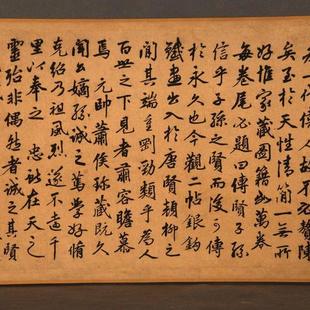 一代偉人故不必贅陳
矣至於天性清簡一無所
好惟家藏圖籍幾萬卷
每卷尾必題曰傳賢子孫
信乎子孫之賢而後可傳
於永久也今觀二帖銀鈎
出入於唐賢顏柳之
間其端重勁類乎為人
百世之下見者肅容瞻慕
焉 元帥蕭侯珍藏既久
聞公嫡孫誠之篤學好脩
克紹乃祖風烈遂不遠千
里以奉之 忠獻在天之
靈殆非偶然者誠之其賢